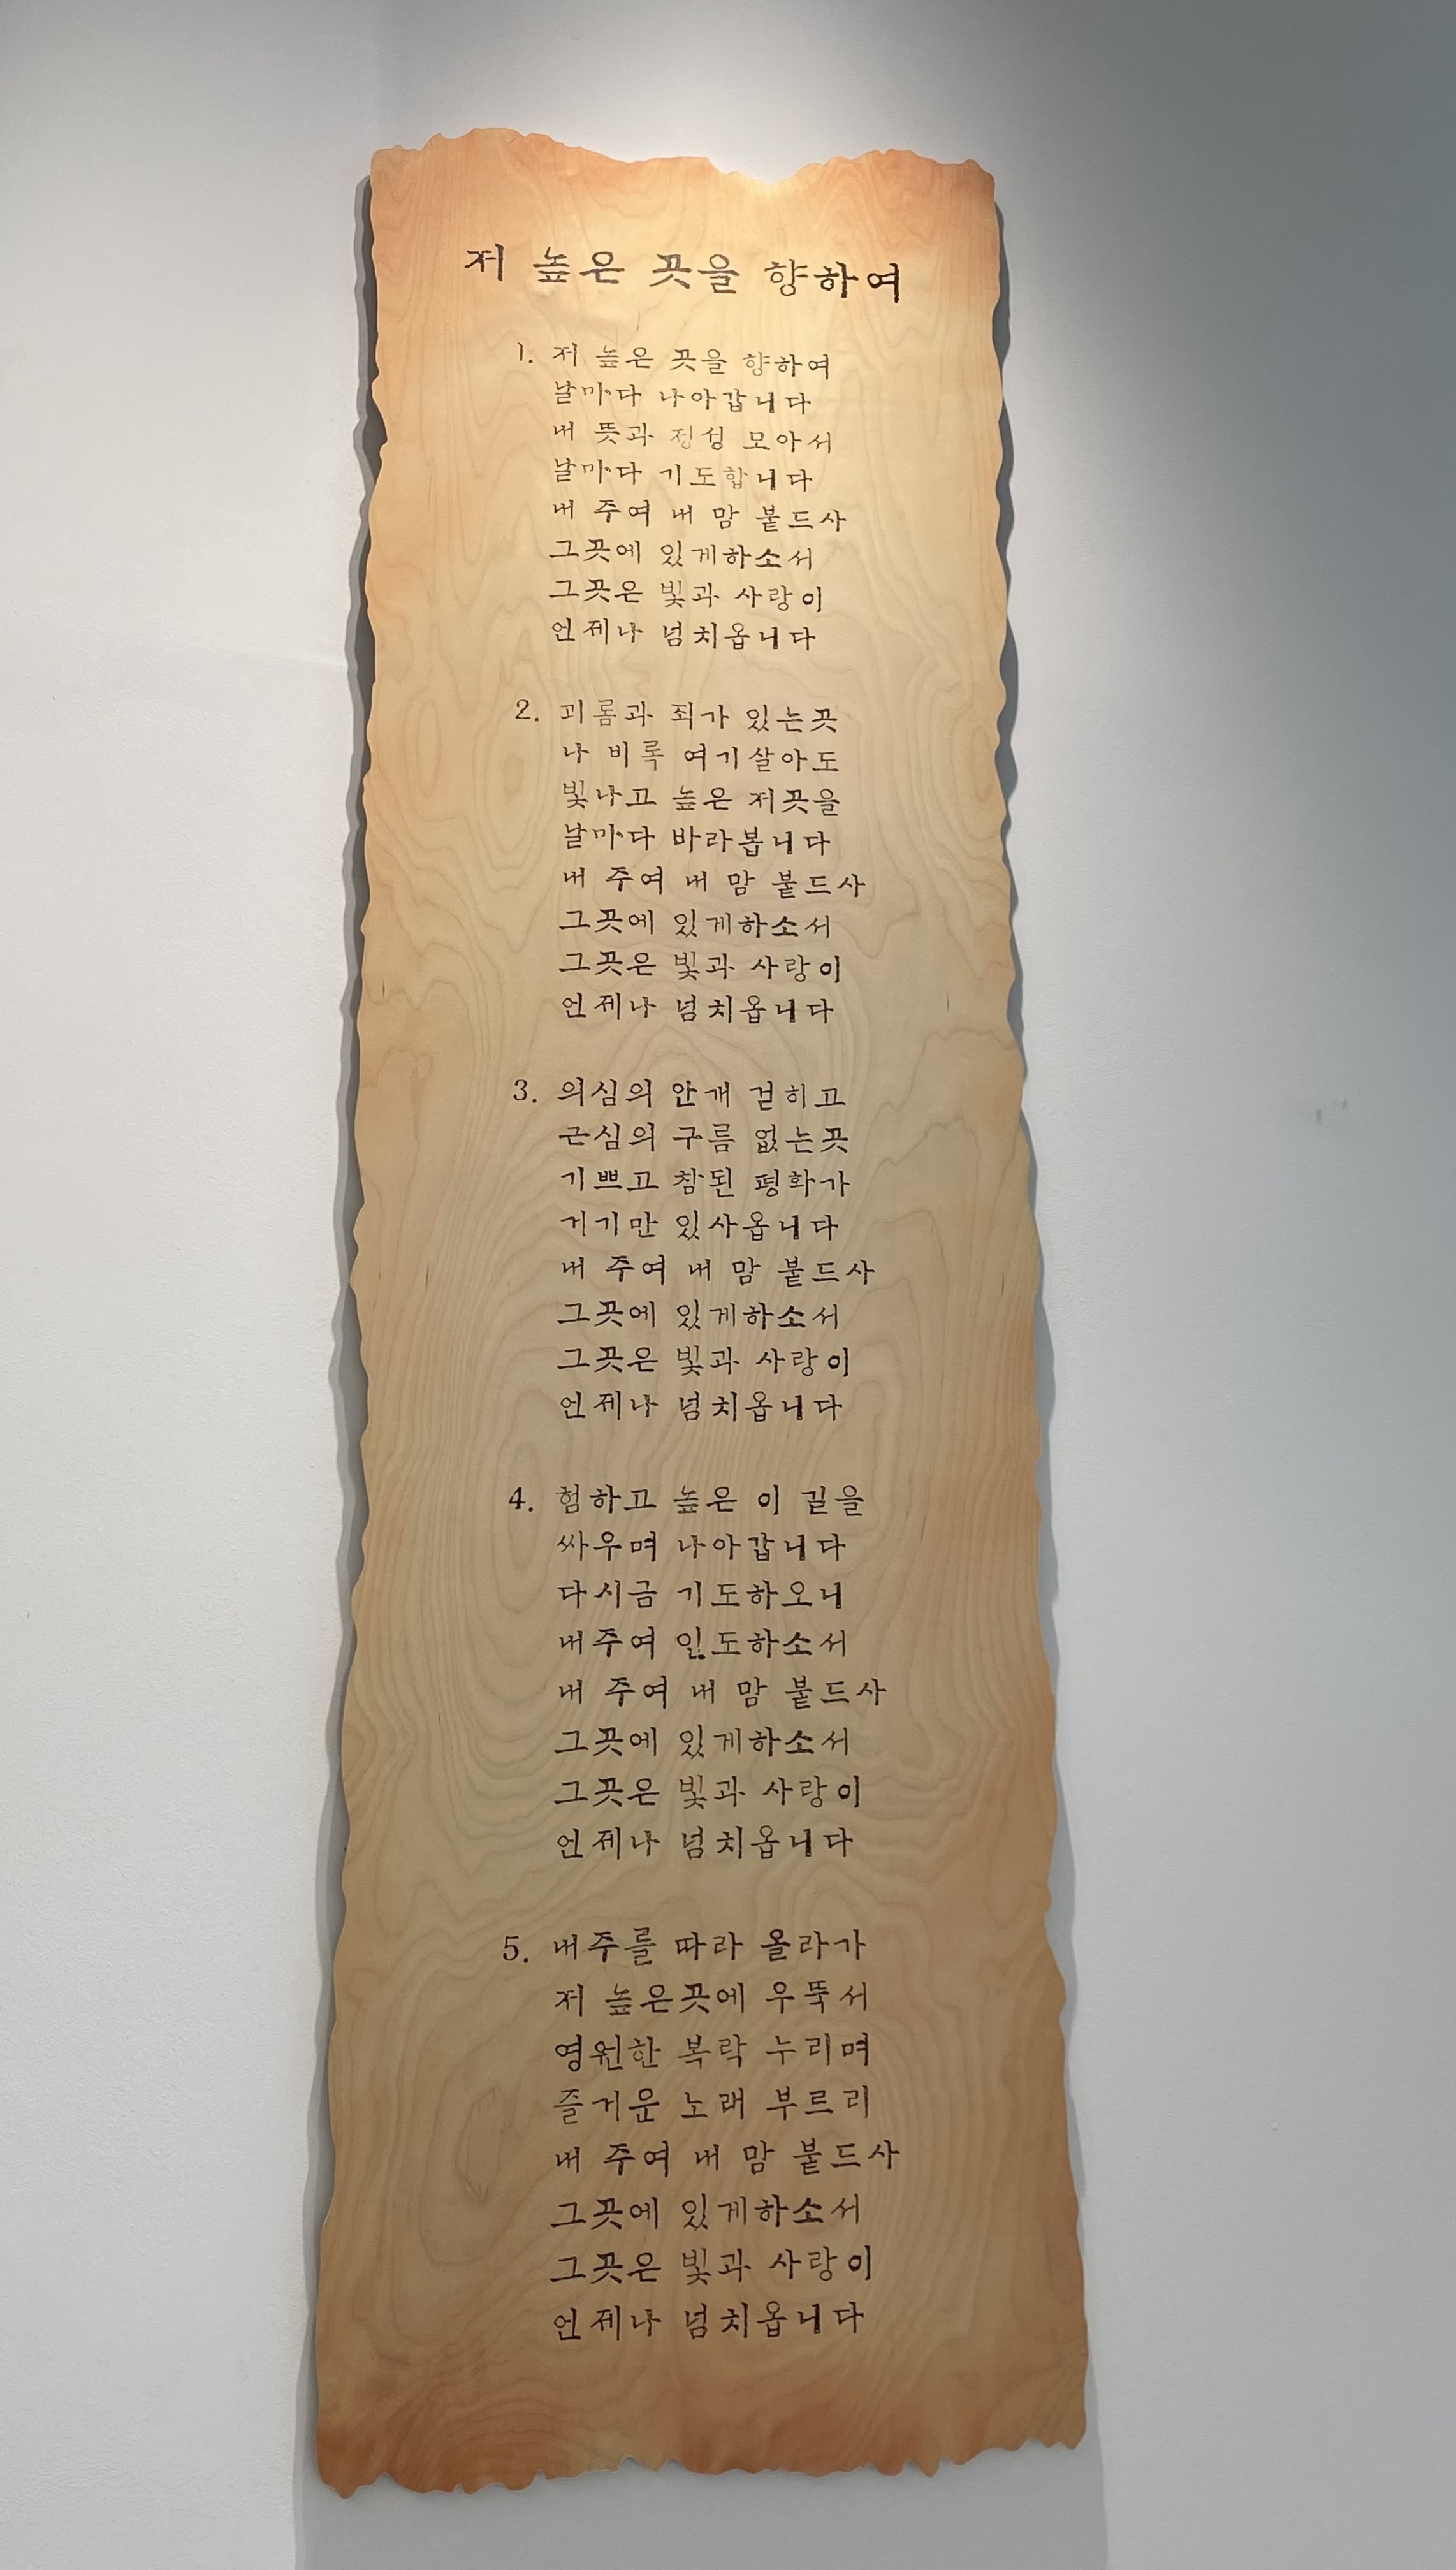 저 높은 곳을 향하여
1. 저 높은 곳을 향하여
날마다 나아갑니다
내 뜻과 정성 모아서
날마다 기도합니다
내 주여 내 맘 붙드사
그곳에 있게하소서
그곳은 빛과 사랑이
언제나 넘치옵니다
2. 괴롬과 죄가 있는곳
나 비록 여기살아도
빛나고 높은 저곳을
날마다 바라봅니다
내 주여 내 맘 붙드사
그곳에 있게하소서
그곳은 빛과 사랑이
언제나 넘치옵니다
3. 의심의 안개 걷히고
근심의 구름 없는곳
기쁘고 참된 평화가
거기만 있사옵니다
내 주여 내 맘 붙드사
그곳에 있게하소서
그곳은 빛과 사랑이
언제나 넘치옵니다
4. 험하고 높은 이 길을
싸우며 나아갑니다
다시금 기도하오니
내주여 인도하소서
내 주여 내 맘 붙드사
그곳에 있게하소서
그곳은 빛과 사랑이
언제나 넘치옵니다
5. 내주를 따라 올라가
저 높은곳에 우뚝서
영원한 복락 누리며
즐거운 노래 부르리
내 주여 내 맘 붙드사
그곳에 있게하소서
그곳은 빛과 사랑이
언제나 넘치옵니다